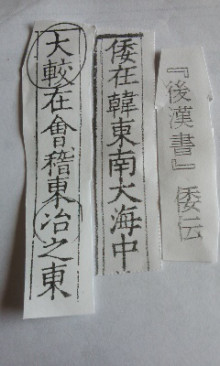 『後漢書』倭伝
倭在韓東南大海中
大較在會稽東冶之東